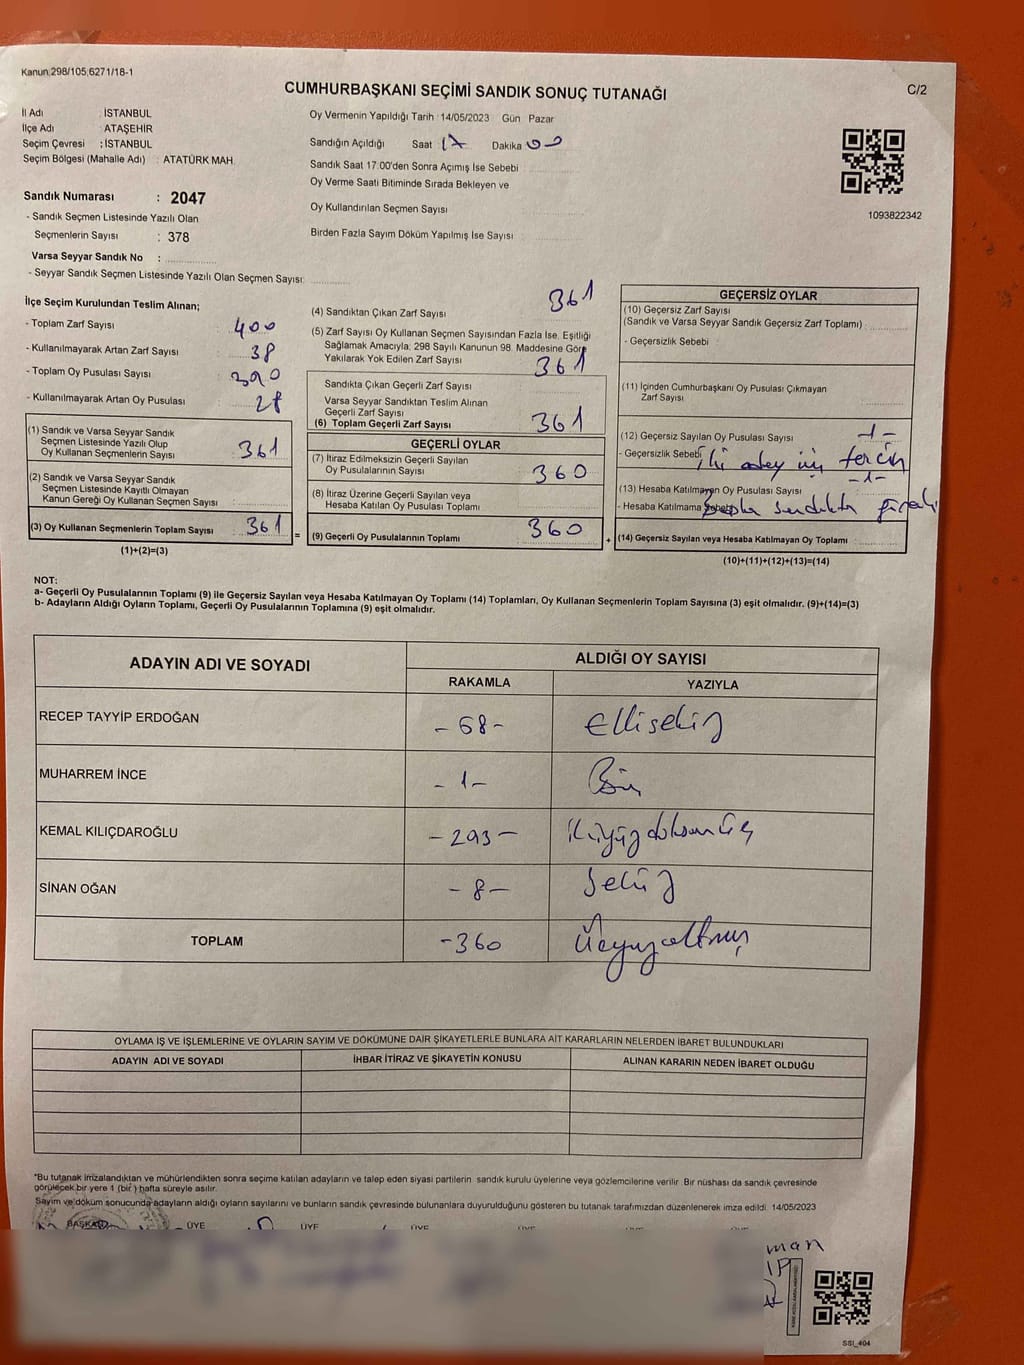 Kanun;298/105;6271/18-1
CUMHURBAŞKANI SEÇİMİ SANDIK SONUÇ TUTANAĞI
C/2
İl Adı : İSTANBUL
İlçe Adı : ATAŞEHİR
Seçim Çevresi : İSTANBUL
Seçim Bölgesi (Mahalle Adı) : ATATÜRK MAH.
Sandık Numarası : 2047
- Sandık Seçmen Listesinde Yazılı Olan
Seçmenlerin Sayısı : 378
Varsa Seyyar Sandık No :
- Seyyar Sandık Seçmen Listesinde Yazılı Olan Seçmen Sayısı:
Oy Vermenin Yapıldığı Tarih : 14/05/2023 Gün Pazar
Sandığın Açıldığı Saat 17 Dakika 00
Sandık Saat 17:00'den Sonra Açımış İse Sebebi
Oy Verme Saati Bitiminde Sırada Bekleyen ve
Oy Kullandırılan Seçmen Sayısı
Birden Fazla Sayım Döküm Yapılmış İse Sayısı
1093822342
İlçe Seçim Kurulundan Teslim Alınan;
- Toplam Zarf Sayısı 400
- Kullanılmayarak Artan Zarf Sayısı 38
- Toplam Oy Pusulası Sayısı 390
- Kullanılmayarak Artan Oy Pusulası 28
(1) Sandık ve Varsa Seyyar Sandık
Seçmen Listesinde Yazılı Olup
Oy Kullanan Seçmenlerin Sayısı 361
(2) Sandık ve Varsa Seyyar Sandık
Seçmen Listesinde Kayıtlı Olmayan
Kanun Gereği Oy Kullanan Seçmen Sayısı
(3) Oy Kullanan Seçmenlerin Toplam Sayısı 361 =
(1)+(2)=(3)
(4) Sandıktan Çıkan Zarf Sayısı 361
(5) Zarf Sayısı Oy Kullanan Seçmen Sayısından Fazla İse, Eşitliği
Sağlamak Amacıyla; 298 Sayılı Kanunun 98. Maddesine Göre
Yakılarak Yok Edilen Zarf Sayısı
Sandıkta Çıkan Geçerli Zarf Sayısı 361
Varsa Seyyar Sandıktan Teslim Alınan
Geçerli Zarf Sayısı
(6) Toplam Geçerli Zarf Sayısı 361
GEÇERLİ OYLAR
(7) İtiraz Edilmeksizin Geçerli Sayılan
Oy Pusulalarının Sayısı 360
(8) İtiraz Üzerine Geçerli Sayılan veya
Hesaba Katılan Oy Pusulası Toplamı
(9) Geçerli Oy Pusulalarının Toplamı 360 +
GEÇERSİZ OYLAR
(10) Geçersiz Zarf Sayısı
(Sandık ve Varsa Seyyar Sandık Geçersiz Zarf Toplamı)
- Geçersizlik Sebebi
(11) İçinden Cumhurbaşkanı Oy Pusulası Çıkmayan
Zarf Sayısı
(12) Geçersiz Sayılan Oy Pusulası Sayısı -1-
- Geçersizlik Sebebi iki aday için tercih
(13) Hesaba Katılmayan Oy Pusulası Sayısı -1-
- Hesaba Katılmama Sebebi Başka sandıkta
(14) Geçersiz Sayılan veya Hesaba Katılmayan Oy Toplamı
(10)+(11)+(12)+(13)=(14)
NOT:
a- Geçerli Oy Pusulalarının Toplamı (9) ile Geçersiz Sayılan veya Hesaba Katılmayan Oy Toplamı (14) Toplamları, Oy Kullanan Seçmenlerin Toplam Sayısına (3) eşit olmalıdır. (9)+(14)=(3)
b- Adayların Aldığı Oyların Toplamı, Geçerli Oy Pusulalarının Toplamına (9) eşit olmalıdır.
ADAYIN ADI VE SOYADI
ALDIĞI OY SAYISI
RAKAMLA YAZIYLA
RECEP TAYYİP ERDOĞAN -58- Ellisekiz
MUHARREM İNCE -1- Bir
KEMAL KILIÇDAROĞLU -293- ikiyüzdoksanüç
SİNAN OĞAN -8- Sekiz
TOPLAM -360 Üçyüzaltmış
OYLAMA İŞ VE İŞLEMLERİNE VE OYLARIN SAYIM VE DÖKÜMÜNE DAİR ŞİKAYETLERLE BUNLARA AİT KARARLARIN NELERDEN İBARET BULUNDUKLARI
ADAYIN ADI VE SOYADI
İHBAR İTİRAZ VE ŞİKAYETİN KONUSU
ALINAN KARARIN NEDEN İBARET OLDUĞU
*Bu tutanak imzalandıktan ve mühürlendikten sonra seçime katılan adayların ve talep eden siyasi partilerin sandık kurulu üyelerine veya gözlemcilerine verilir. Bir nüshası da sandık çevresinde
görülecek bir yere 1 (bir) hafta süreyle asılır.
Sayım ve döküm sonucunda adayların aldığı oyların sayılarını ve bunların sandık çevresinde bulunanlara duyurulduğunu gösteren bu tutanak tarafımızdan düzenlenerek imza edildi. 14/05/2023
BAŞKAN ÜYE ÜYE ÜYE
SSI_404